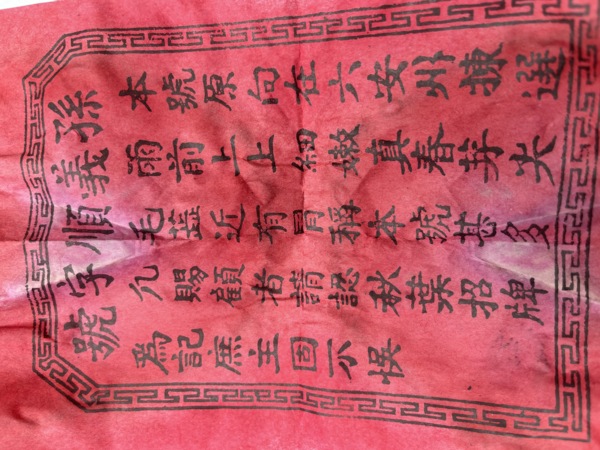 孫義順字號
本號原向在六安州揀選
雨前上上細嫩真春芽尖
毛蕋近有冒稱本號甚多
凢賜顧者請認秋葉招牌
為記庶主固不悞